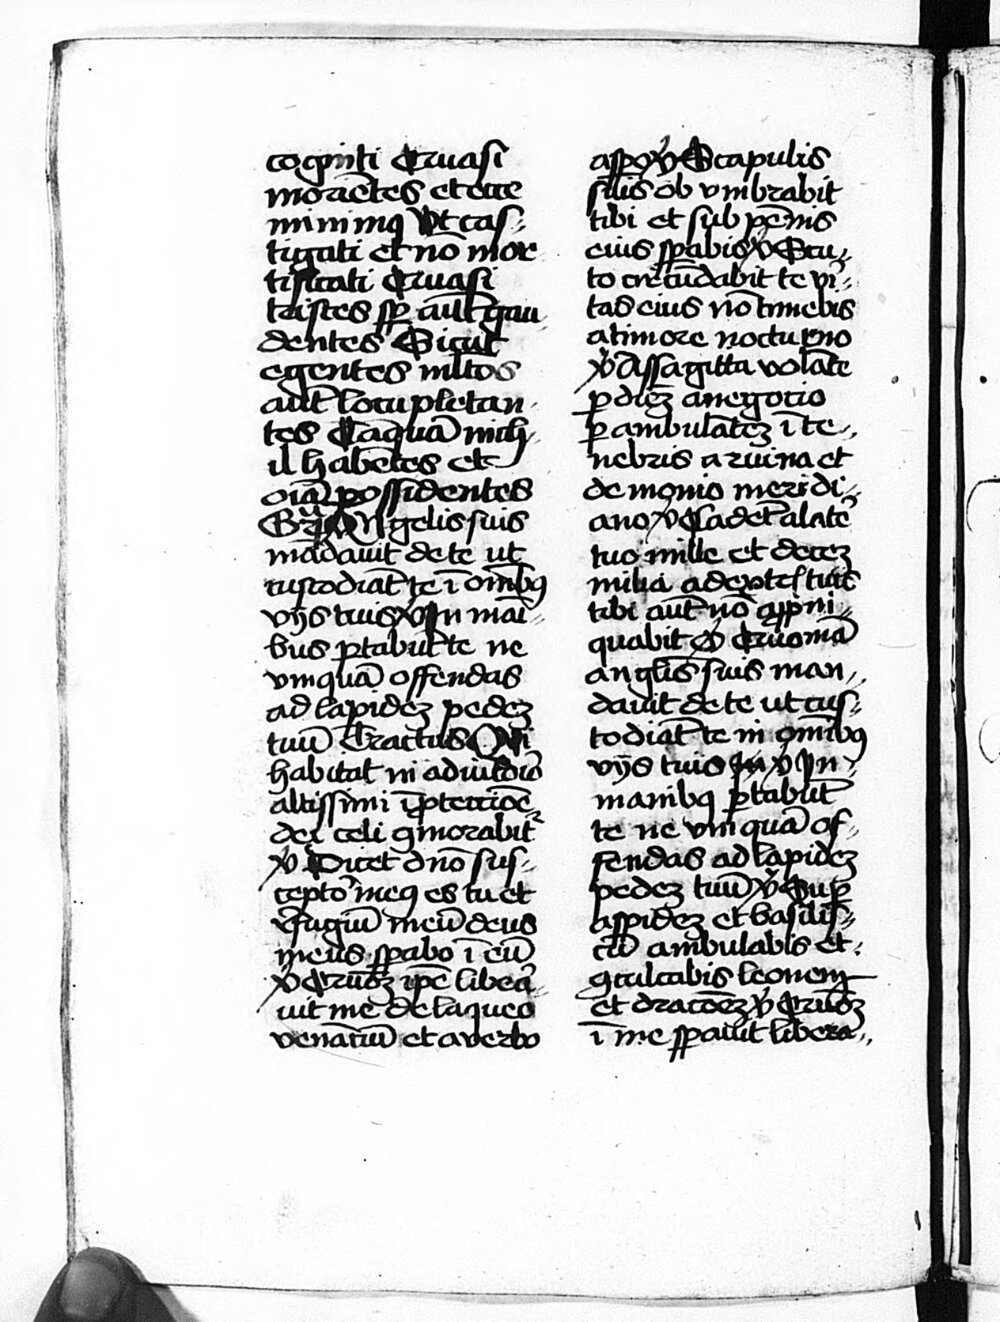 cogniti Quasi
morie͞tes et ecce
miminꝰ Ut cas⸗
tigati et nō mor
tificati Quasi
tristes sꝑ aūt gau
dentes Sicut
egentes ml̄tos
aūt locupletan
tes Taquā nich
il habētes et
oīa possidentes
Gr̄ Angelis suis
mādavit de te ut
custodiāt te ī omībꝰ
vijs tuis ꝟ In māi
bus ꝑtabūt te ne
vmquā offendas
ad lapidez pedez
tuū Tractus Qvi
habitat in adiutoio
altissimi ī ꝓtectiōe
dei celi ꝯmorabit᷑
ꝟ Dicet dnō sus⸗
ceptoꝛ meꝰ es tu et
rēfugiū meū deus
meus sꝑabo ī eū
ꝟ Qm̄ ip̄e libera
uit me de laqueo
venātiū et a verbo
aspo ꝟ Scapulis
suis ob vmbrabit
tibi et sub pēnis
eius sꝑabis ꝟ Scu⸗
to circūdabit te vi⸗
tas eius nō timebis
a timore nocturno
ꝟ A sagitta volāte
ꝑ diez a negocio
ꝑ ambulātez ī te⸗
nebris a ruina et
demonio meridi⸗
ano ꝟ Cadēt a late᷑
tuo mille et decez
milia a dextēs tuis
tibi aūt nō appī⸗
quabit ꝟ Quoniā
anglis suis man⸗
davit de te ut cus⸗
todiāt te in omībꝰ
vijs tuis ꝟ In
manibꝰ ꝑtabūt
te ne vm quā of⸗
fendas ad lapidez
pedez tuū ꝟ Suꝑ
aspidez et basilis⸗
cū ambulabis et
ꝯculcabis leonem
et dracōez ꝟ Qm̄
ī me sꝑauit libera⸗